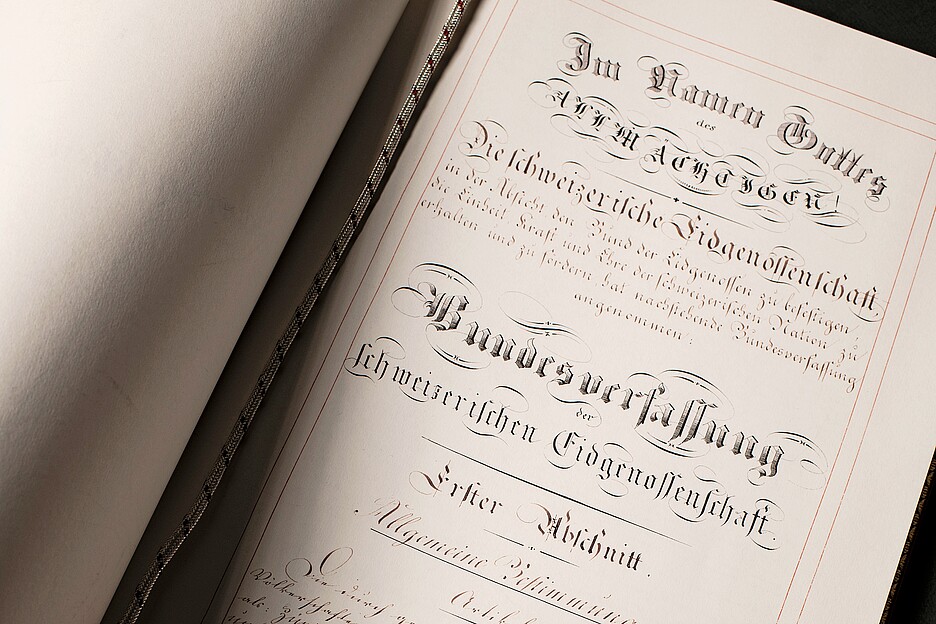 Im Namen Gottes
des
ALLMÄCHTIGEN!
Die schweizerische Eidgenossenschaft,
in der Absicht den Bund der Eidgenossen zu befestigen,
die Einheit, Kraft und Ehre der schweizerischen Nation zu
erhalten und zu fördern, hat nachstehende Bundesverfassung
angenommen:
Bundesverfassung
der
schweizerischen Eidgenossenschaft.
Erster Abschnitt.
Allgemeine Bestimmung
Artik
Die durch
Völkerschafte
als: Zür